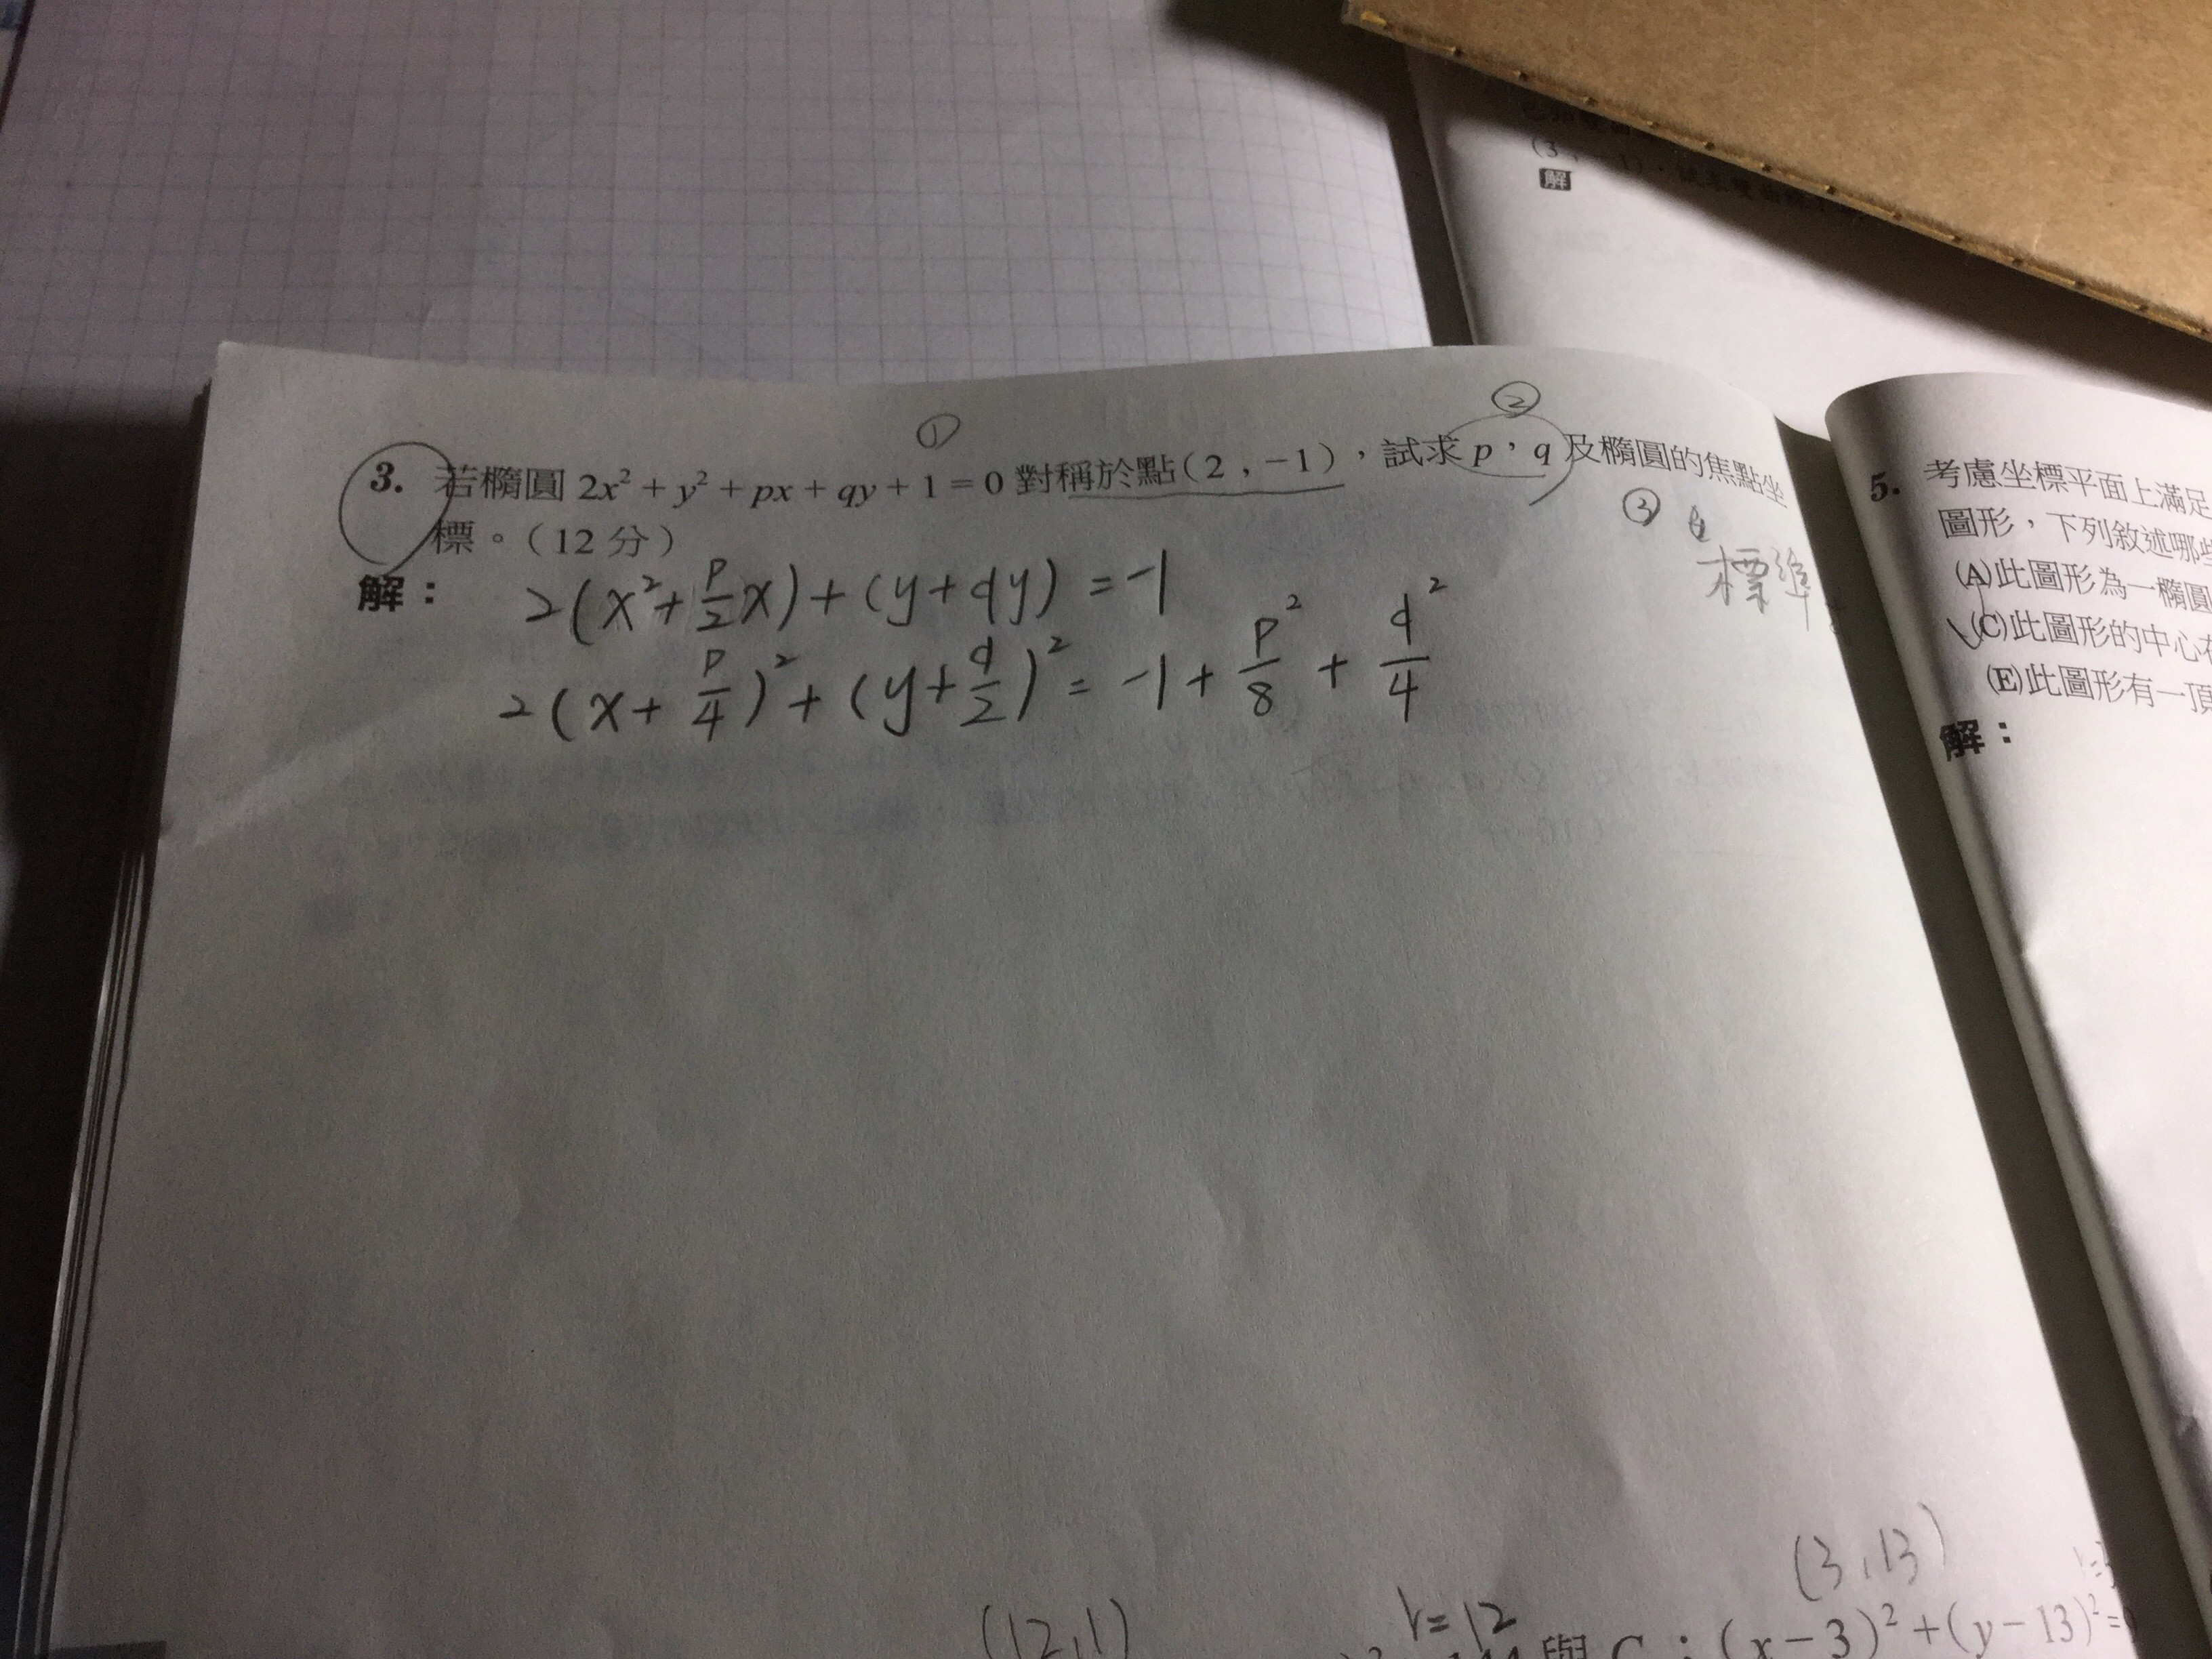 (3
解
①
②
3. 若橢圓 2x² + y² + px + qy + 1 = 0 對稱於點(2 , −1),試求 p,q 及橢圓的焦點坐
標。(12 分)
③
標準
解:
2(x²+p/2x)+(y+qy)=-1
2(x+p/4)²+(y+q/2)²=-1+p²/8+q²/4
(3,13)
(12,1)
r=12
與 C:(x−3)²+(y−13)²=
5. 考慮坐標平面上滿足
圖形,下列敘述哪些
(A)此圖形為一橢圓
(C)此圖形的中心在
(E)此圖形有一頂
解: